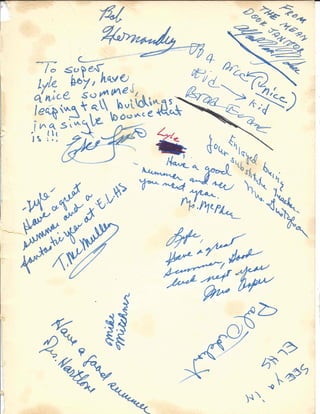 Bob
Hernandez
FROM
THE MEAN
DOOR JANITOR
To super
Lyle boy, have
a nice summer,
leaping tall buildings
in a single bounce that
is!!!
To A nice (nice)
kid → kid
Lyle
Have a good
summer and see
you next year.
Enjoyed being
your substitute teacher
Mrs.
-Lyle-
Have a great
summer and a
fantastic year at ELHS
T. McMullen
Lyle,
Have a great
summer, Good
luck next year
Mrs
Mike
Mitchner
Have a good summer
Mrs. Hartlove
SEE ya iN
ELHS